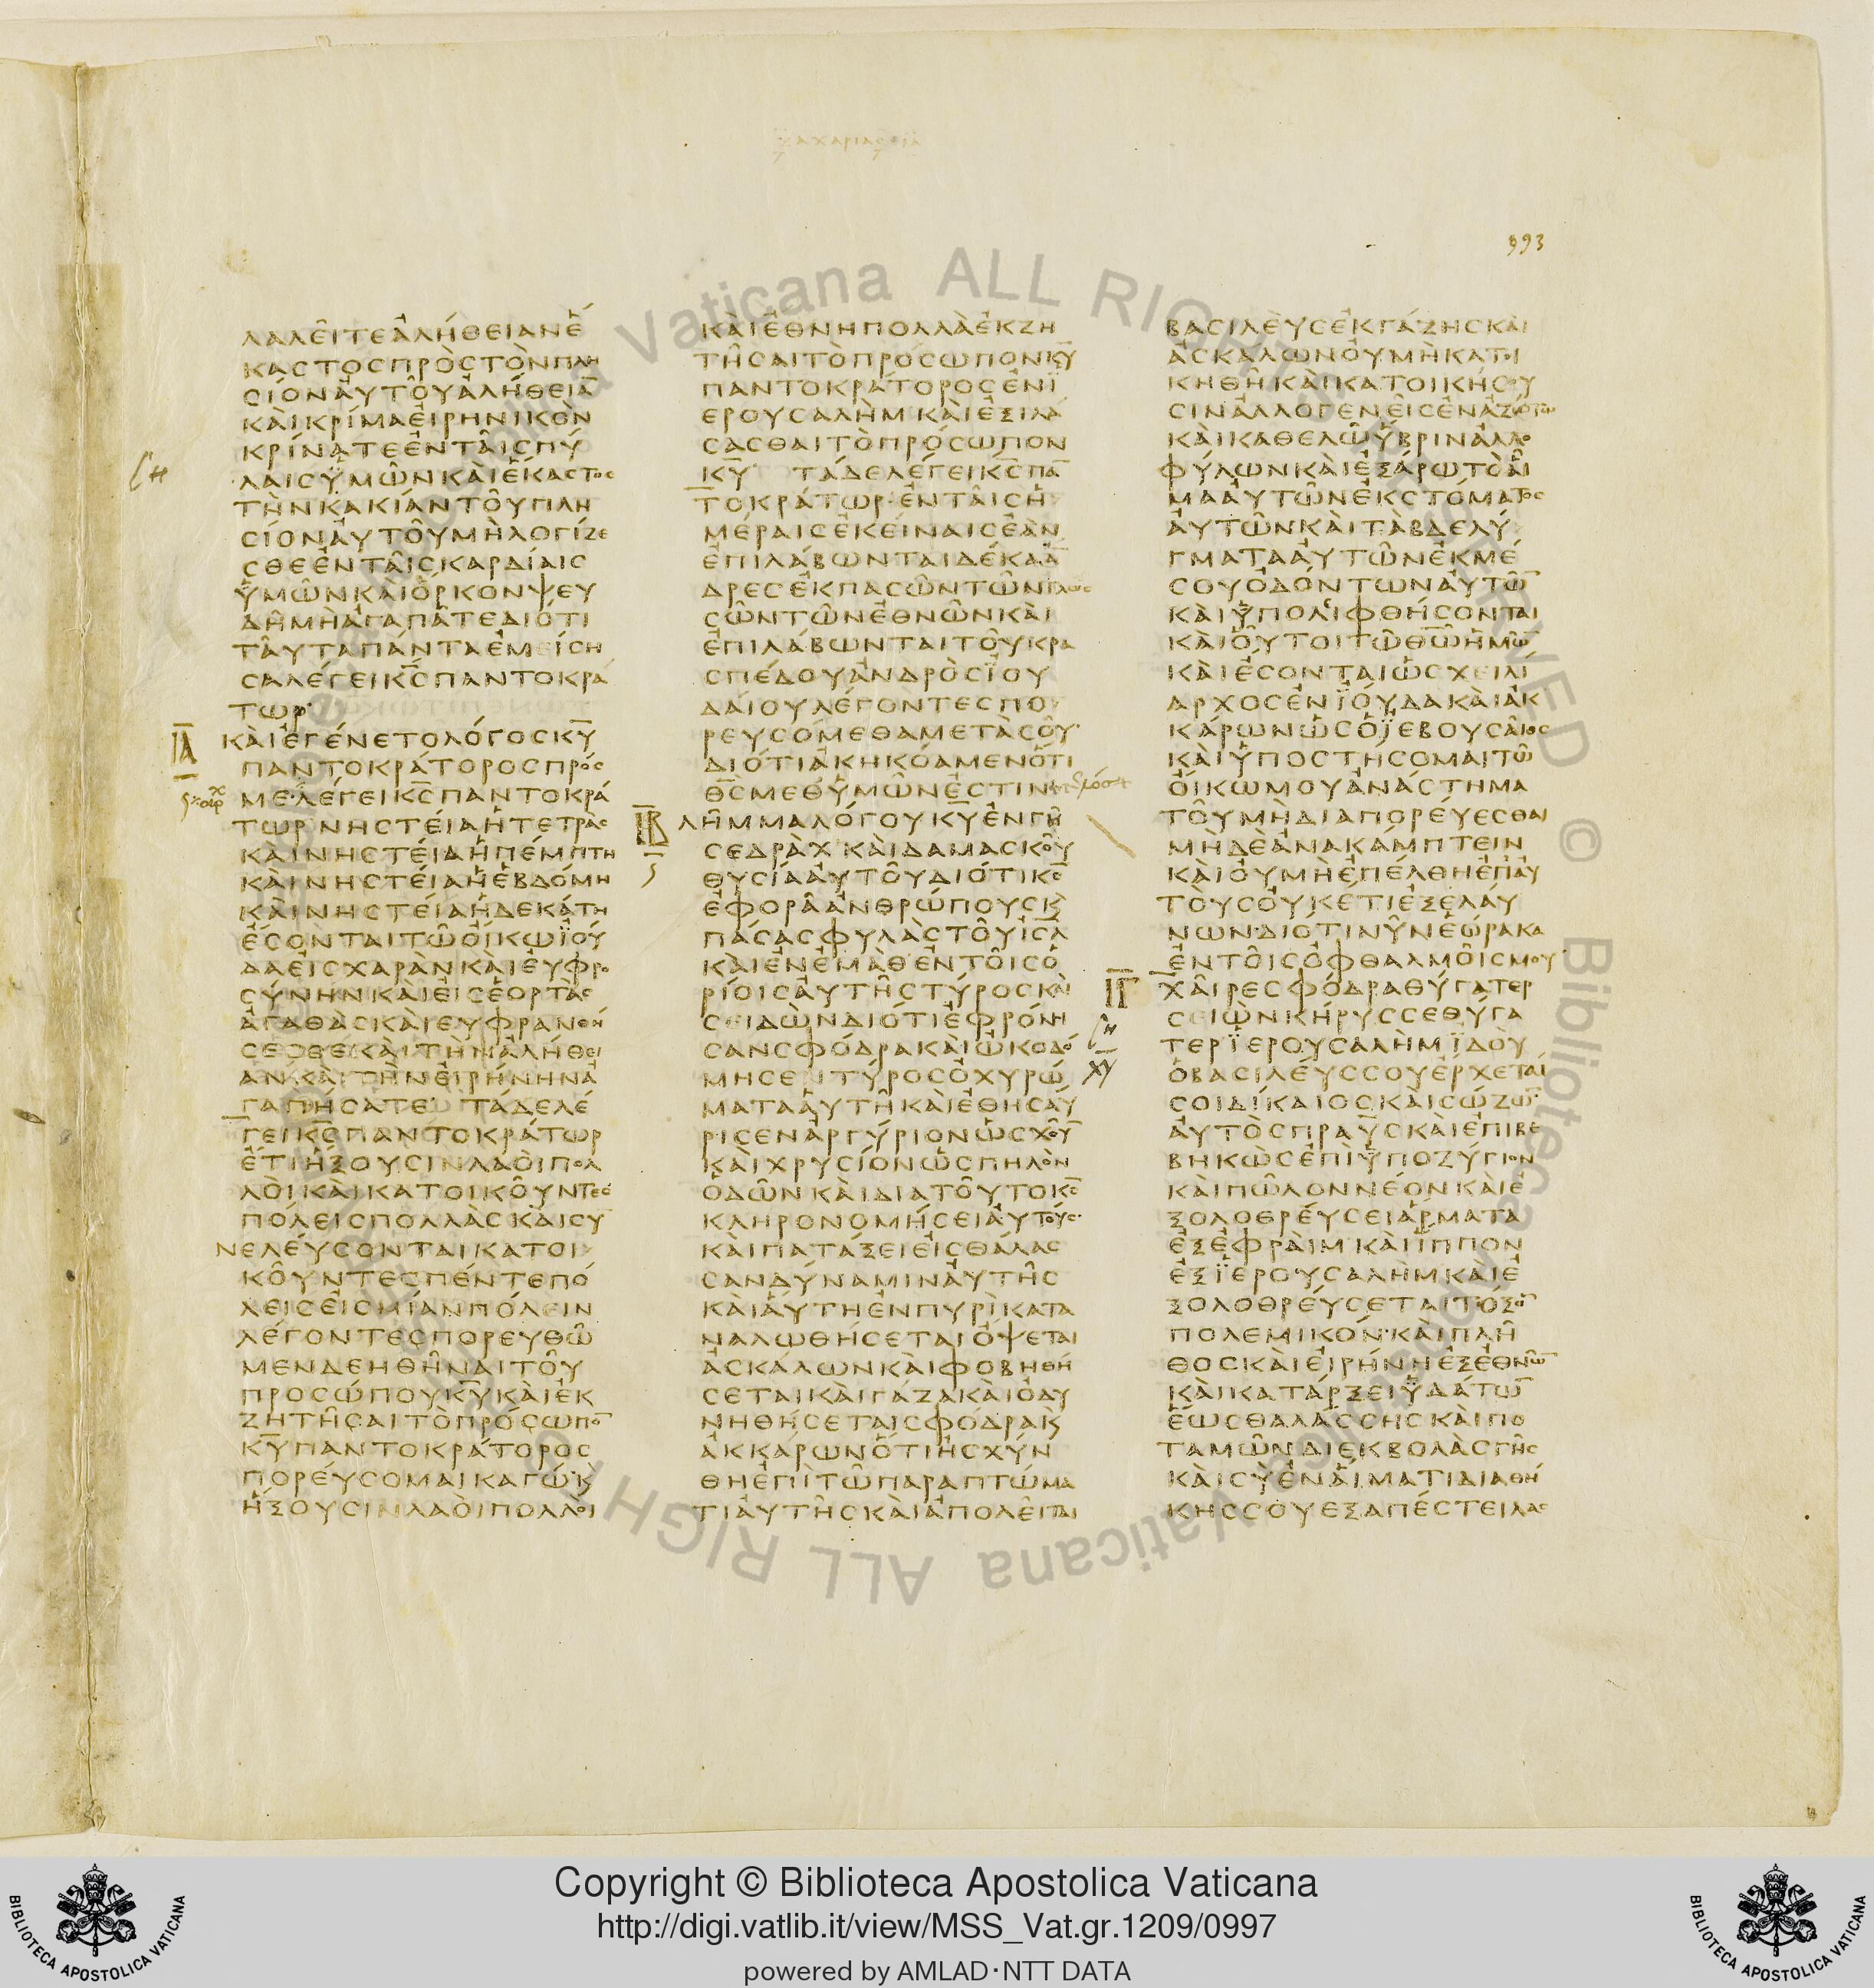 ζαχαριας
993
ΛΑΛΕΙΤΕΑΛΗΘΕΙΑΝΕ
ΚΑСΤΟСΠΡΟСΤΟΝΠΛΗ
СΙΟΝΑΥΤΟΥΑΛΗΘΕΙΑ̅
ΚΑΙΚΡΙΜΑΕΙΡΗΝΙΚΟΝ
ΚΡΙΝΑΤΕΕΝΤΑΙСΠΥ
ΛΑΙСΥΜΩΝΚΑΙΕΚΑСΤΟС
ΤΗΝΚΑΚΙΑΝΤΟΥΠΛΗ
СΙΟΝΑΥΤΟΥΜΗΛΟΓΙΖΕ
СΘΕΕΝΤΑΙСΚΑΡΔΙΑΙС
ΥΜΩΝΚΑΙΟΡΚΟΝΨΕΥ
ΔΗΜΗΑΓΑΠΑΤΕΔΙΟΤΙ
ΤΑΥΤΑΠΑΝΤΑΕΜΕΙСΗ
СΑΛΕΓΕΙΚ̅С̅ΠΑΝΤΟΚΡΑ
ΤΩΡ·
ΙΑ ΚΑΙΕΓΕΝΕΤΟΛΟΓΟСΚ̅Υ̅
ΠΑΝΤΟΚΡΑΤΟΡΟСΠΡΟС
ΜΕ·ΛΕΓΕΙΚ̅С̅ΠΑΝΤΟΚΡΑ
ΤΩΡΝΗСΤΕΙΑΗΤΕΤΡΑС
ΚΑΙΝΗСΤΕΙΑΗΠΕΜΠΤΗ
ΚΑΙΝΗСΤΕΙΑΗΕΒΔΟΜΗ
ΚΑΙΝΗСΤΕΙΑΗΔΕΚΑΤΗ
ΕСΟΝΤΑΙΤΩΟΙΚΩΪΟΥ
ΔΑΕΙСΧΑΡΑΝΚΑΙΕΥΦΡΟ
СΥΝΗΝΚΑΙΕΙСΕΟΡΤΑС
ΑΓΑΘΑСΚΑΙΕΥΦΡΑΝΘΗ
СΕСΘΕΚΑΙΤΗΝΑΛΗΘΕΙ
ΑΝΚΑΙΤΗΝΕΙΡΗΝΗΝΑ
ΓΑΠΗСΑΤΕ· ΤΑΔΕΛΕ
ΓΕΙΚ̅С̅ΠΑΝΤΟΚΡΑΤΩΡ
ΕΤΙΗΞΟΥСΙΝΛΑΟΙΠΟΛ
ΛΟΙΚΑΙΚΑΤΟΙΚΟΥΝΤΕС
ΠΟΛΕΙСΠΟΛΛΑСΚΑΙСΥ
ΝΕΛΕΥСΟΝΤΑΙΚΑΤΟΙ
ΚΟΥΝΤΕСΠΕΝΤΕΠΟ
ΛΕΙСΕΙСΜΙΑΝΠΟΛΕΙΝ
ΛΕΓΟΝΤΕСΠΟΡΕΥΘΩ̅
ΜΕΝΔΕΗΘΗΝΑΙΤΟΥ
ΠΡΟСΩΠΟΥΚ̅Υ̅ΚΑΙΕΚ
ΖΗΤΗСΑΙΤΟΠΡΟСΩΠΟ̅
Κ̅Υ̅ΠΑΝΤΟΚΡΑΤΟΡΟС
ΠΟΡΕΥСΟΜΑΙΚΑΓΩ·Κ
ΗΞΟΥСΙΝΛΑΟΙΠΟΛΛΟΙ
ΚΑΙΕΘΝΗΠΟΛΛΑΕΚΖΗ
ΤΗСΑΙΤΟΠΡΟСΩΠΟΝΚ̅Υ̅
ΠΑΝΤΟΚΡΑΤΟΡΟСΕΝΪ
ΕΡΟΥСΑΛΗΜΚΑΙΕΞΙΛΑ
СΑСΘΑΙΤΟΠΡΟСΩΠΟΝ
Κ̅Υ̅ ΤΑΔΕΛΕΓΕΙΚ̅С̅ΠΑ̅
ΤΟΚΡΑΤΩΡ·ΕΝΤΑΙСΗ
ΜΕΡΑΙСΕΚΕΙΝΑΙСΕΑΝ
ΕΠΙΛΑΒΩΝΤΑΙΔΕΚΑΑ̅
ΔΡΕСΕΚΠΑСΩΝΤΩΝΓΛΩС
СΩΝΤΩΝΕΘΝΩΝΚΑΙ
ΕΠΙΛΑΒΩΝΤΑΙΤΟΥΚΡΑ
СΠΕΔΟΥΑΝΔΡΟСΪΟΥ
ΔΑΙΟΥΛΕΓΟΝΤΕСΠΟ
ΡΕΥСΟΜΕΘΑΜΕΤΑСΟΥ·
ΔΙΟΤΙΑΚΗΚΟΑΜΕΝΟΤΙ
Θ̅С̅ΜΕΘΥΜΩΝΕСΤΙΝ
ΙΒ ΛΗΜΜΑΛΟΓΟΥΚ̅Υ̅ΕΝΓΗ
СΕΔΡΑΧ ΚΑΙΔΑΜΑСΚΟΥ
ΘΥСΙΑΑΥΤΟΥΔΙΟΤΙΚ̅С̅
ΕΦΟΡΑΑΝΘΡΩΠΟΥСΚ
ΠΑСΑСΦΥΛΑСΤΟΥΙ̅С̅Λ̅
ΚΑΙΕΝΕΜΑΘ ΕΝΤΟΙСΟ
ΡΙΟΙСΑΥΤΗСΤΥΡΟСΚΑΙ
СΕΙΔΩΝΔΙΟΤΙΕΦΡΟΝΗ
СΑΝСΦΟΔΡΑΚΑΙΩΚΟΔΟ
ΜΗСΕΝΤΥΡΟСΟΧΥΡΩ
ΜΑΤΑΑΥΤΗΚΑΙΕΘΗСΑΥ
ΡΙСΕΝΑΡΓΥΡΙΟΝΩСΧΟΥ̅
ΚΑΙΧΡΥСΙΟΝΩСΠΗΛΟΝ
ΟΔΩΝΚΑΙΔΙΑΤΟΥΤΟΚ̅С̅
ΚΛΗΡΟΝΟΜΗСΕΙΑΥΤΟΥС·
ΚΑΙΠΑΤΑΞΕΙΕΙСΘΑΛΑС
СΑΝΔΥΝΑΜΙΝΑΥΤΗС
ΚΑΙΑΥΤΗΕΝΠΥΡΙΚΑΤΑ
ΝΑΛΩΘΗСΕΤΑΙΟΨΕΤΑΙ
ΑСΚΑΛΩΝΚΑΙΦΟΒΗΘΗ
СΕΤΑΙΚΑΙΓΑΖΑΚΑΙΟΔΥ
ΝΗΘΗСΕΤΑΙСΦΟΔΡΑΚ
ΑΚΚΑΡΩΝΟΤΙΗСΧΥΝ
ΘΗΕΠΙΤΩΠΑΡΑΠΤΩΜΑ
ΤΙΑΥΤΗСΚΑΙΑΠΟΛΕΙΤΑΙ
ΒΑСΙΛΕΥСΕΚΓΑΖΗСΚΑΙ
ΑСΚΑΛΩΝΟΥΜΗΚΑΤΟΙ
ΚΗΘΗΚΑΙΚΑΤΟΙΚΗСΟΥ
СΙΝΑΛΛΟΓΕΝΕΙСΕΝΑΖΩΤΩ
ΚΑΙΚΑΘΕΛΩΫΒΡΙΝΑΛΛΟ
ΦΥΛΩΝΚΑΙΕΞΑΡΩΤΟΑΙ
ΜΑΑΥΤΩΝΕΚСΤΟΜΑΤΟС
ΑΥΤΩΝΚΑΙΤΑΒΔΕΛΥ
ΓΜΑΤΑΑΥΤΩΝΕΚΜΕ
СΟΥΟΔΟΝΤΩΝΑΥΤΩ̅
ΚΑΙΫΠΟΛΙΦΘΗСΟΝΤΑΙ
ΚΑΙΟΥΤΟΙΤΩΘ̅Ω̅ΗΜΩ̅
ΚΑΙΕСΟΝΤΑΙΩСΧΕΙΛΙ
ΑΡΧΟСΕΝΪΟΥΔΑΚΑΙΑΚ
ΚΑΡΩΝΩСΟΪΕΒΟΥСΑΙΟС
ΚΑΙΫΠΟСΤΗСΟΜΑΙΤΩ
ΟΙΚΩΜΟΥΑΝΑСΤΗΜΑ
ΤΟΥΜΗΔΙΑΠΟΡΕΥΕСΘΑΙ
ΜΗΔΕΑΝΑΚΑΜΠΤΕΙΝ
ΚΑΙΟΥΜΗΕΠΕΛΘΗΕΠΑΥ
ΤΟΥСΟΥΚΕΤΙΕΞΕΛΑΥ
ΝΩΝ·ΔΙΟΤΙΝΥΝΕΩΡΑΚΑ
ΕΝΤΟΙСΟΦΘΑΛΜΟΙСΜΟΥ·
ΙΓ ΧΑΙΡΕСΦΟΔΡΑΘΥΓΑΤΕΡ
СΕΙΩΝΚΗΡΥССΕΘΥΓΑ
ΤΕΡΪΕΡΟΥСΑΛΗΜΪΔΟΥ
ΟΒΑСΙΛΕΥССΟΥΕΡΧΕΤΑΙ
СΟΙΔΙΚΑΙΟСΚΑΙСΩΖΩ̅
ΑΥΤΟСΠΡΑΥСΚΑΙΕΠΙΒΕ
ΒΗΚΩСΕΠΙΫΠΟΖΥΓΙΟΝ
ΚΑΙΠΩΛΟΝΝΕΟΝΚΑΙΕ
ΞΟΛΟΘΡΕΥСΕΙΑΡΜΑΤΑ
ΕΞΕΦΡΑΙΜΚΑΙΙΠΠΟΝ
ΕΞΪΕΡΟΥСΑΛΗΜΚΑΙΕ
ΞΟΛΟΘΡΕΥСΕΤΑΙΤΟΞΟ̅
ΠΟΛΕΜΙΚΟΝ·ΚΑΙΠΛΗ
ΘΟСΚΑΙΕΙΡΗΝΗΕΞΕΘΝΩ̅
ΚΑΙΚΑΤΑΡΞΕΙΫΔΑΤΩ̅
ΕΩСΘΑΛΑССΗСΚΑΙΠΟ
ΤΑΜΩΝΔΙΕΚΒΟΛΑСΓΗС
ΚΑΙСΥΕΝΑΙΜΑΤΙΔΙΑΘΗ
ΚΗССΟΥΕΞΑΠΕСΤΕΙΛΑС
Vaticana ALL RIGHTS RESERVED © Biblioteca Apostolica Vaticana ALL RIGH
Copyright © Biblioteca Apostolica Vaticana
http://digi.vatlib.it/view/MSS_Vat.gr.1209/0997
powered by AMLAD·NTT DATA
BIBLIOTECA APOSTOLICA VATICANA
BIBLIOTECA APOSTOLICA VATICANA